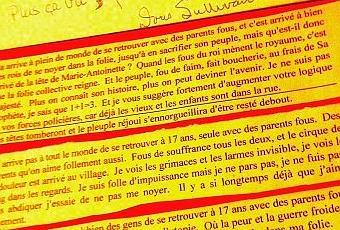 Plus ça va
Doris Sullivan
arrive à plein de monde de se retrouver avec des parents fous, et c'est arrivé à bien
rois de se noyer dans la folie, jusqu'à en sacrifier son peuple, mais qu'est-il donc
rivé de la tête de Marie-Antoinette ? Quand les fous du roi mènent le royaume, c'est
la folie collective reigne. Et le peuple, fou de faim, fait boucherie, au frais de Sa
ajesté. Plus on connaît son histoire, plus on peut deviner l'avenir. Je ne suis pas
ophète. Je sais que 1+1=3. Et je vous suggère fortement d'augmenter votre logique
vos forces policières, car déjà les vieux et les enfants sont dans la rue.
s têtes tomberont et le pleuple réjoui s'ennorgueillira d'être resté debout.
arrive pas à tout le monde de se retrouver à 17 ans, seule avec des parents fous. Des
rents qu'on aime follement aussi. Fous de souffrance tous les deux, et le cirque de
douleur est au village. Je vois les grimaces et les larmes invisible, je vois le
ng dans les regards. Je suis folle d'impuissance mais je ne pars pas, je ne fuis pas
abdiquer j'essaie de ne pas me noyer. Il y a si longtemps déjà que j'ain
rement.
bien des gens de se retrouver à 17 ans avec des parents fous
Où la peur et la guerre froide
dans ma folie.